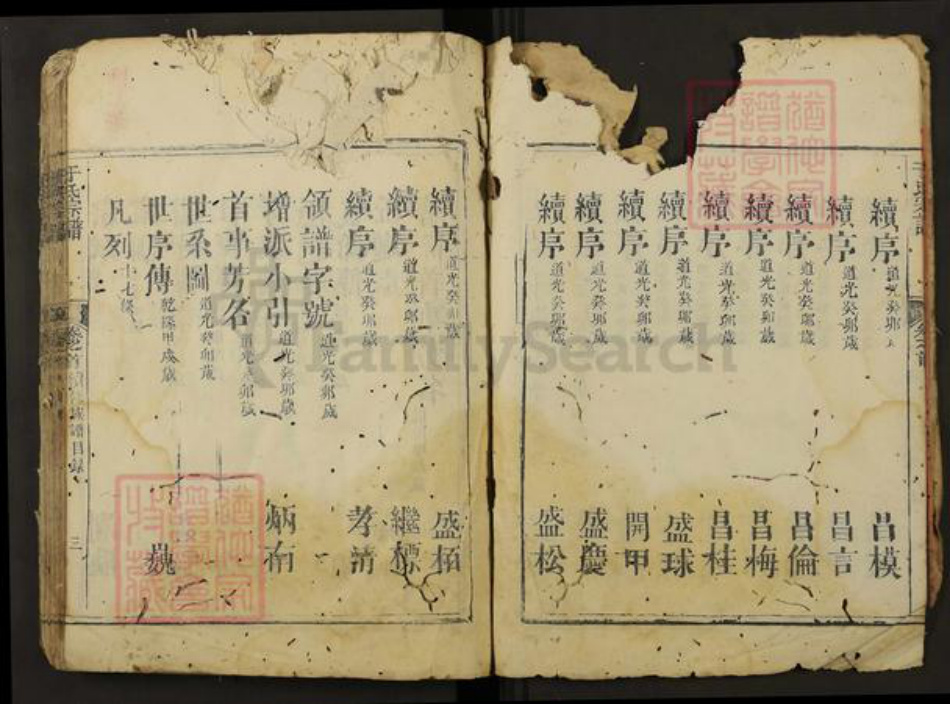 續序 道光癸卯 昌模
續序 道光癸卯歲 昌言
續序 道光癸卯歲 昌倫
續序 道光癸卯歲 昌梅
續序 道光癸卯歲 昌桂
續序 道光癸卯歲 盛球
續序 道光癸卯歲 開甲
續序 道光癸卯歲 盛慶
續序 道光癸卯歲 盛松
續序 道光癸卯歲 盛栢
續序 道光癸卯歲 繼標
續序 道光癸卯歲 孝清
領譜字號 道光癸卯歲
增派小引 道光癸卯歲 炳南
首事芳名 道光癸卯歲
世系圖 道光癸卯歲
世序傳 乾隆甲戌歲 巍
凡列 十七條
于氏宗譜 卷之首 譜目錄 三
FamilySearch